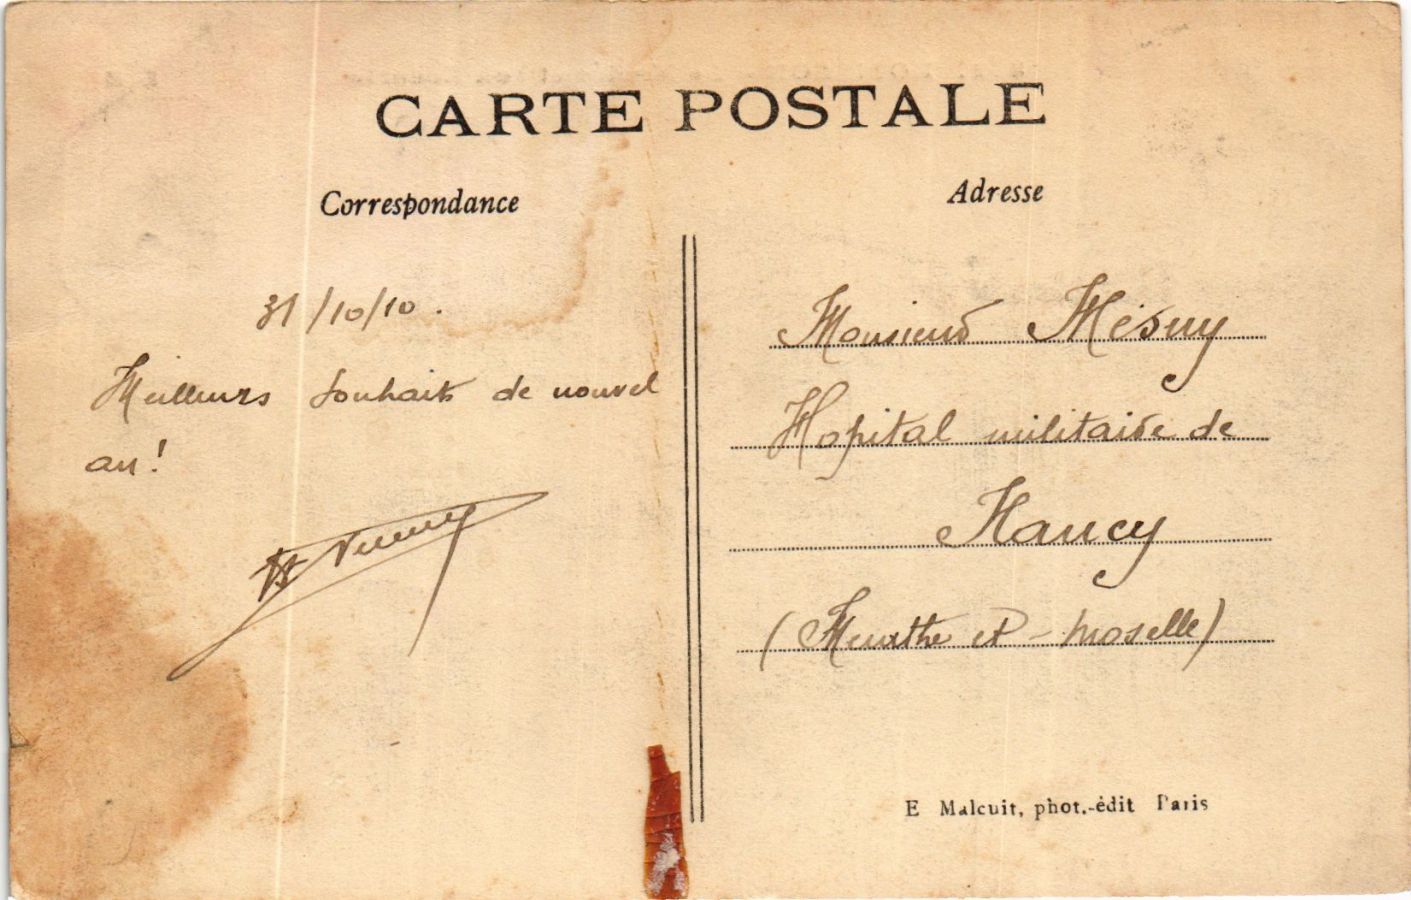 CARTE POSTALE
Correspondance
Adresse
31/10/10.
Meilleurs souhaits de nouvel
an!
Monsieur Mesny
Hopital militaire de
Nancy
(Meurthe et - Moselle)
E Malcuit, phot.-édit Paris